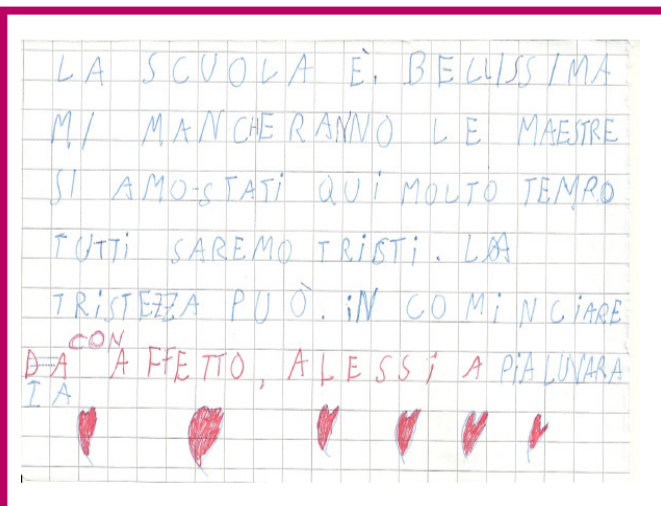 LA SCUOLA È. BELLISSIMA
MI MANCHERANNO LE MAESTRE
SI AMO-STATi QUi MOLTO TEMPO
TUTTi SAREMO TRiSTi. LA
TRiSTEZZA PUÒ. iN COMiNCiARE
CON
DA AFFETTO, ALESSiA PiALUVARA
IA